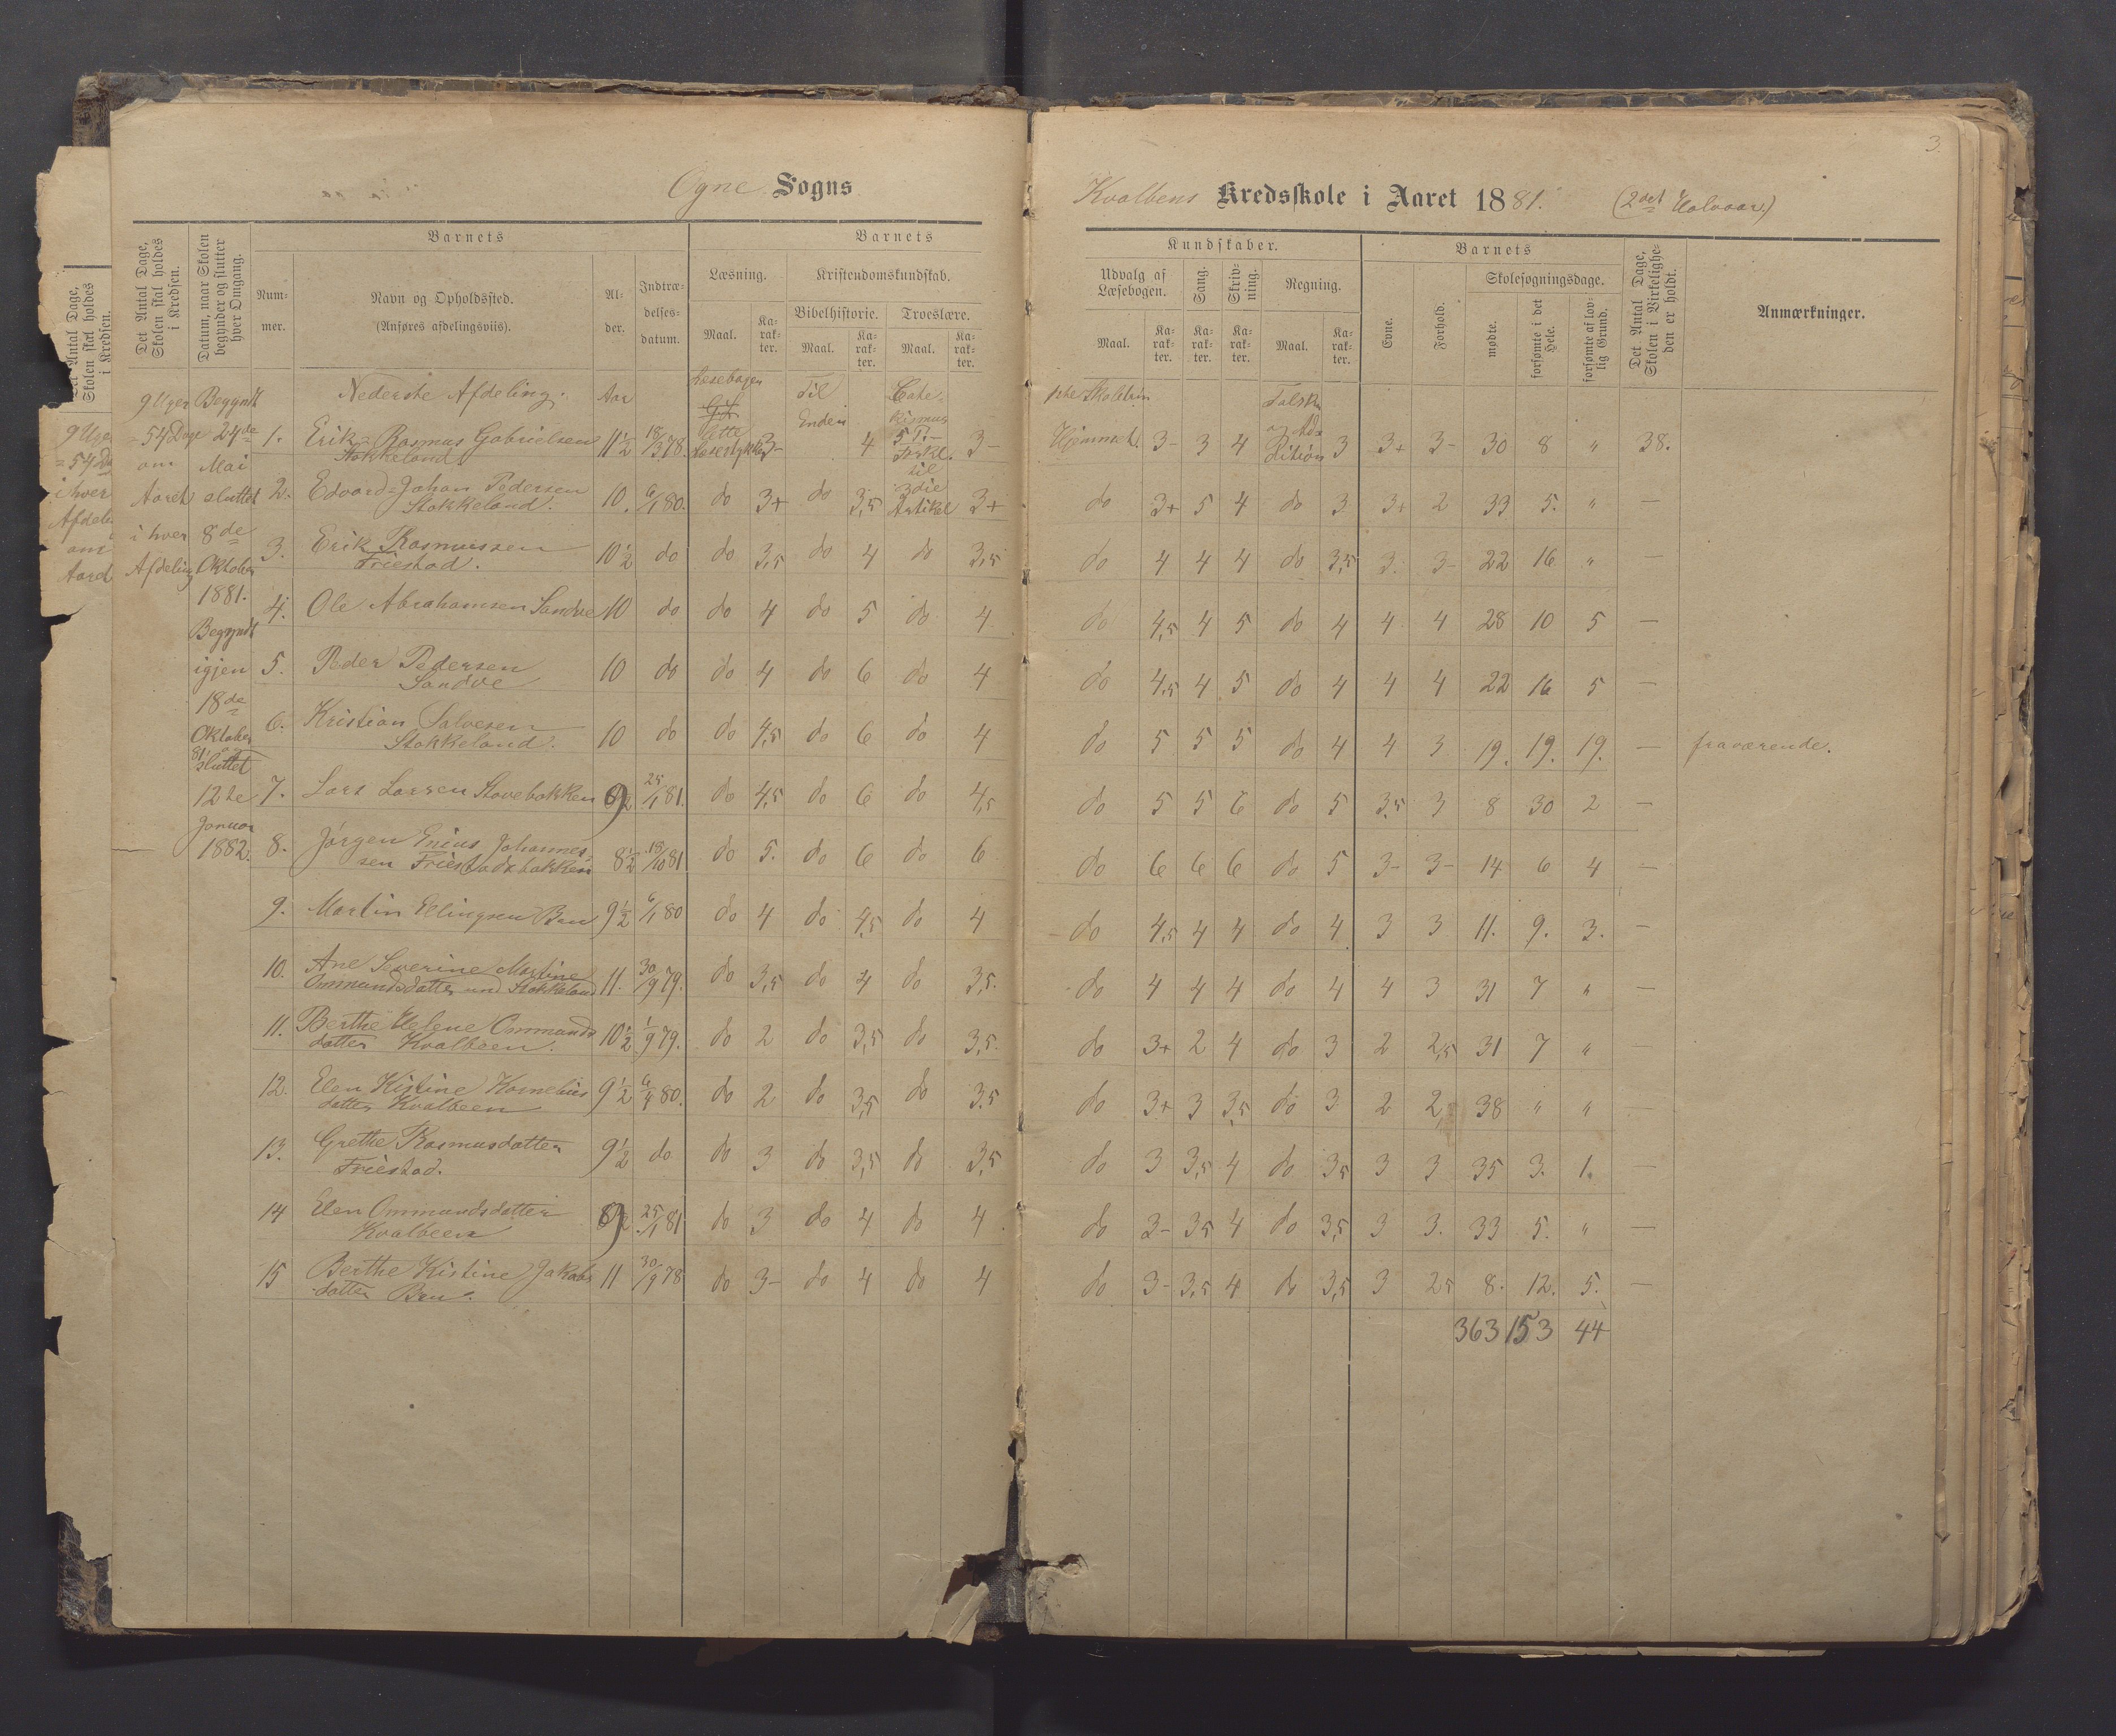 Ogne Sogns
Kvalbens Kredsskole i Aaret 1881. (2det Halvaar.)
3.
Det Antal Dage, Skolen skal holdes i Kredsen.
Datum, naar Skolen begynder og slutter hver Omgang.
Barnets
Num-
mer.
Navn og Opholdssted.
(Anføres afdelingsviis).
Al-
der.
Indtræ-
delses-
datum.
Barnets
Læsning.
Kristendomskundskab.
Bibelhistorie. Troeslære.
Maal. Ka-rak-ter. Maal. Ka-rak-ter. Maal. Ka-rak-ter.
Kundskaber.
Udvalg af Læsebogen. Sang. Skriv-ning. Regning.
Maal. Ka-rak-ter. Ka-rak-ter. Ka-rak-ter. Maal. Ka-rak-ter.
Barnets
Evne. Forhold.
Skolesøgningsdage.
mødte. forsømte i det Hele. forsømte af lov-lig Grund.
Det Antal Dage, Skolen i Virkelighe-den er holdt.
Anmærkninger.
9 Uger
= 54 Dage
om
Aaret
i hver
Afdeling
Begyndt
24de
Mai
sluttet
8de
Oktober
1881.
Begyndt
igjen
18de
Oktober
81 sluttet
12te
Januar
1882.
Nederste Afdeling. Aar
Læsebogen
lette
Læsestykker
Til
Enden
Cate-
kismus
til
3die
Artikel
1ste Skoletrin
Hjemmet.
Talskr.
og Ad-
dition
1. Erik Rasmus Gabrielsen Stokkeland 11½ 18/3 78. 3- 4 3- 3- 3 4 3 3+ 3- 30 8 " 38.
2. Edvard Johan Pedersen Stokkeland. 10. 6/1 80. do 3+ do 3,5 3+ do 3+ 5 4 do 3 3+ 2 33 5. " —
3. Erik Rasmussen Friestad. 10½ do do 3,5 do 4 do 3,5 do 4 4 4 do 3,5 3. 3- 22 16 " —
4. Ole Abrahamsen Sandve 10 do do 4 do 5 do 4 do 4,5 4 5 do 4 4 4 28 10 5 —
5. Peder Pedersen Sandve 10 do do 4 do 6 do 4 do 4,5 4 5 do 4 4 4 22 16 5 —
6. Kristian Salvesen Stokkeland. 10 do do 4,5 do 6 do 4 do 5 5 5 do 4 4 3 19. 19. 19. — fraværende.
7. Lars Larsen Stavebakken 9 25/1 81. do 4,5 do 6 do 4,5 do 5 5 6 do 5 3,5 3 8 30 2 —
8. Jørgen Enius Johannes-sen Friestadbakken 8½ 18/10 81 do 5. do 6 do 6 do 6 6 6 do 5 3- 3- 14 6 4 —
9. Martin Ellingsen Bru 9½ 6/1 80 do 4 do 4,5 do 4 do 4,5 4 4 do 4 3 3 11. 9. 3. —
10. Ane Severine Martine Ommundsdatter Stokkeland 11. 30/9 79. do 3,5 do 4 do 3,5. do 4 4 4 do 4 4 3 31 7 " —
11. Berthe Helene Ommunds datter Kvalbeen. 10½ 1/9 79. do 2 do 3,5 do 3,5. do 3+ 2 4 do 3 2 2,5 31 7 " —
12. Elen Kistine Kornelius datter Kvalbeen 9½ 80. do 2 do 3,5 do 3,5 do 3+ 3 3,5 do 3 2 2, 38 " " —
13. Grethe Rasmusdatter Friestad. 9½ do do 3 do 3,5 do 3,5 do 3 3,5 4 do 3,5 3 3 35 3. 1. —
14 Elen Ommundsdatter Kvalbeen 9 25/1 81 do 3 do 4 do 4 do 3- 3,5 4 do 3,5 3 3. 33 5. " —
15 Berthe Kistine Jakobs datter Bru. 11 30/9 78 do 3- do 4 do 4 do 3- 3,5 4 do 3,5 3 2,5 8. 12. 5. —
363 153 44